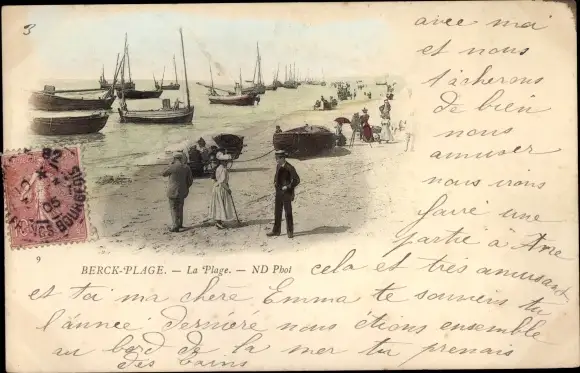 3
avec moi
et nous
t'acherons
de bien
nous
amuser
nous irons
faire une
partie à Ane
9
BERCK-PLAGE. — La Plage. — ND Phot
cela et très amusant
et toi ma chère Emma te souviens tu
l'année dernière nous étions ensemble
au bord de la mer tu prenais
des bains